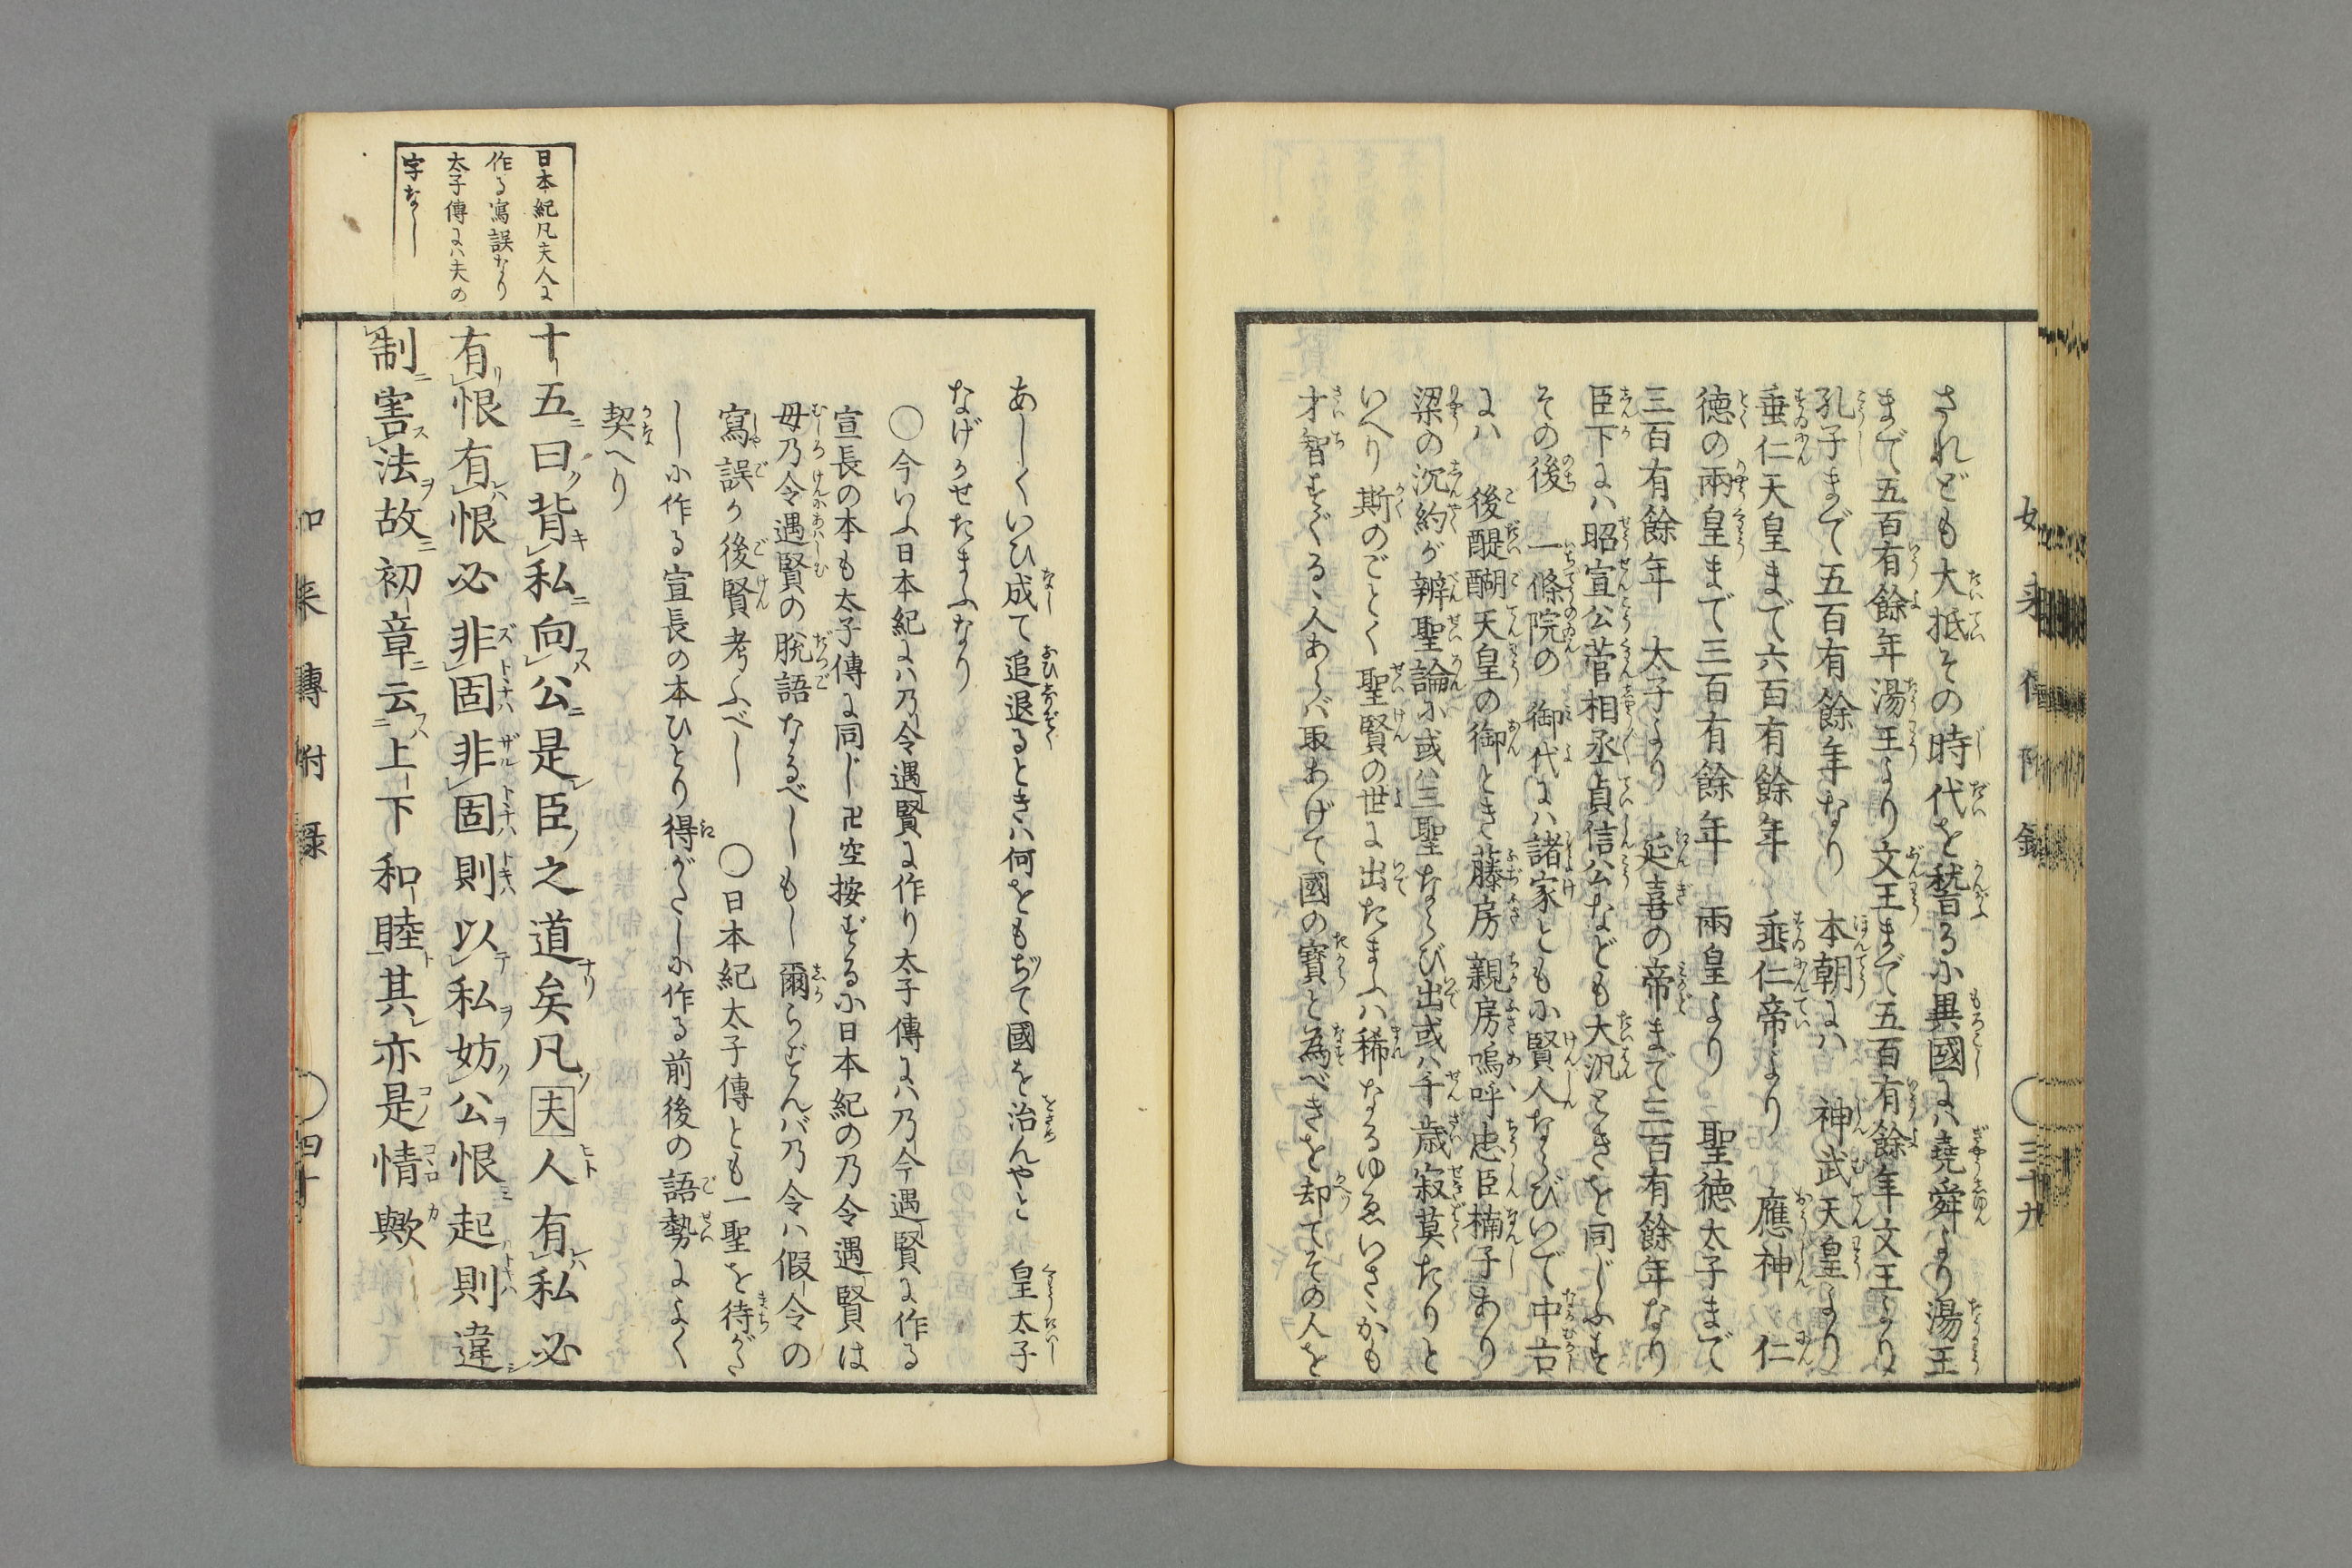 されども大抵その時代を稽るに異國には堯舜より湯王
まで五百有餘年湯王より文王まで五百有餘年文王より
孔子まで五百有餘年なり　本朝には　神武天皇より
垂仁天皇まで六百有餘年　垂仁帝より　應神　仁
徳の兩皇まで三百有餘年　兩皇より　聖徳太子まで
三百有餘年　太子より　延喜の帝まで三百有餘年なり
臣下には昭宣公菅相丞貞信公なども大汎ときを同じふす
その後　一條院の　御代には諸家ともに賢人ならびいで中古
には　後醍醐天皇の御とき藤房親房嗚呼忠臣楠子あり
梁の沉約が辨聖論に或は三聖ならび出或は千歳寂莫たりと
いへり斯のごとく聖賢の世に出たまふは稀なるゆゑいさゝかも
才智すぐるゝ人あらば取あげて國の寶と為べきを却てその人を
三十九
日本紀凡夫人に
作る寫誤なり
太子傳には夫の
字なし
あしくいひ成て追退るときは何をもぢて國を治んやと　皇太子
なげかせたまふなり
〇今いふ日本紀には乃令遇賢に作り太子傳には乃今遇賢に作る
宣長の本も太子傳に同じ卍空按ずるに日本紀の乃令遇賢は
毋乃令遇賢の脱語なるべしもし爾らずんば乃令は假令の
寫誤か後賢考ふべし　〇日本紀太子傳とも一聖を待がた
しに作る宣長の本ひとり得がたしに作る前後の語勢によく
契へり
十五曰背私向公是臣之道矣凡夫人有私必
有恨有恨必非固非固則以私妨公恨起則違
制害法故初章云上下和睦其亦是情歟
如来傳附録
〇四十